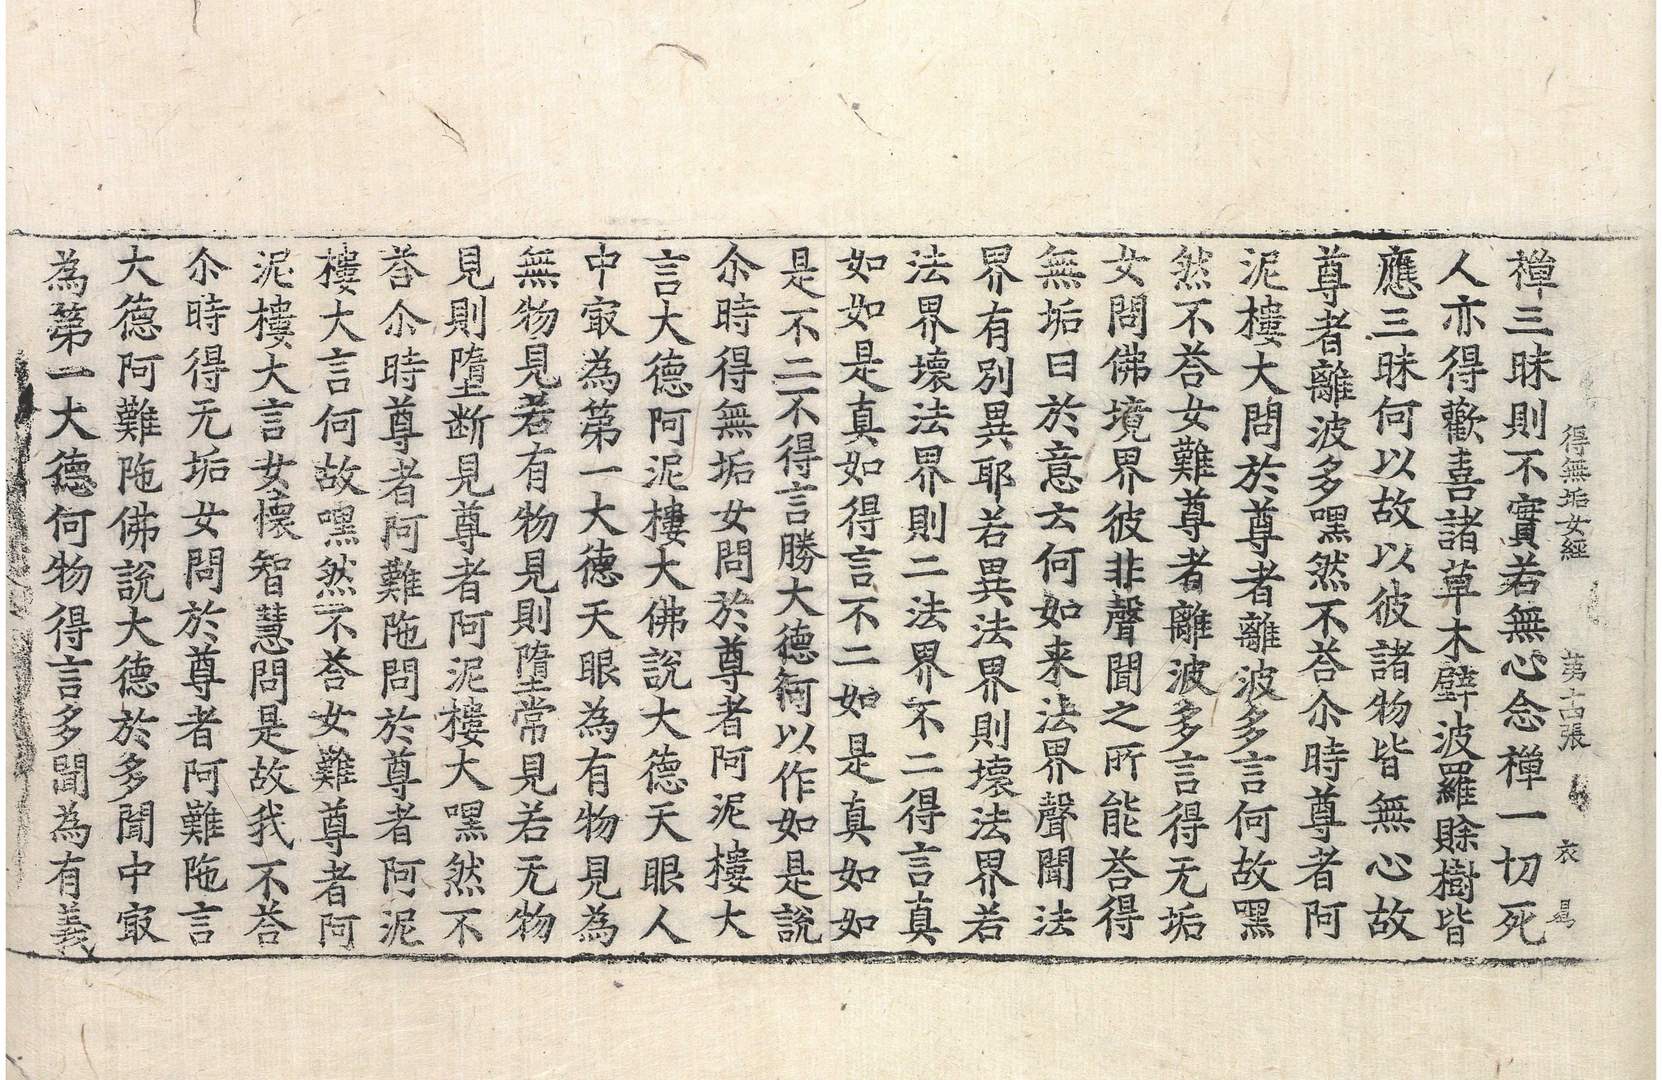 得無垢女經　第十古張　衣　昜
禪三昧則不實若無心念禪一切死
人亦得歡喜諸草木壁波羅賖樹皆
應三昧何以故以彼諸物皆無心故
尊者離波多嘿然不荅尒時尊者阿
泥樓大問於尊者離波多言何故嘿
然不荅女難尊者離波多言得无垢
女問佛境界彼非聲聞之所能荅得
無垢曰於意云何如来法界聲聞法
界有別異耶若異法界則壞法界若
法界壞法界則二法界不二得言真
如如是真如得言不二如是真如如
是不二不得言勝大德何以作如是說
尒時得無垢女問於尊者阿泥樓大
言大德阿泥樓大佛說大德天眼人
中㝡為第一大德天眼為有物見為
無物見若有物見則墮常見若无物
見則墮断見尊者阿泥樓大嘿然不
荅尒時尊者阿難陁問於尊者阿泥
樓大言何故嘿然不荅女難尊者阿
泥樓大言女懐智慧問是故我不荅
尒時得无垢女問於尊者阿難陁言
大德阿難陁佛說大德於多聞中㝡
為第一大德何物得言多聞為有義